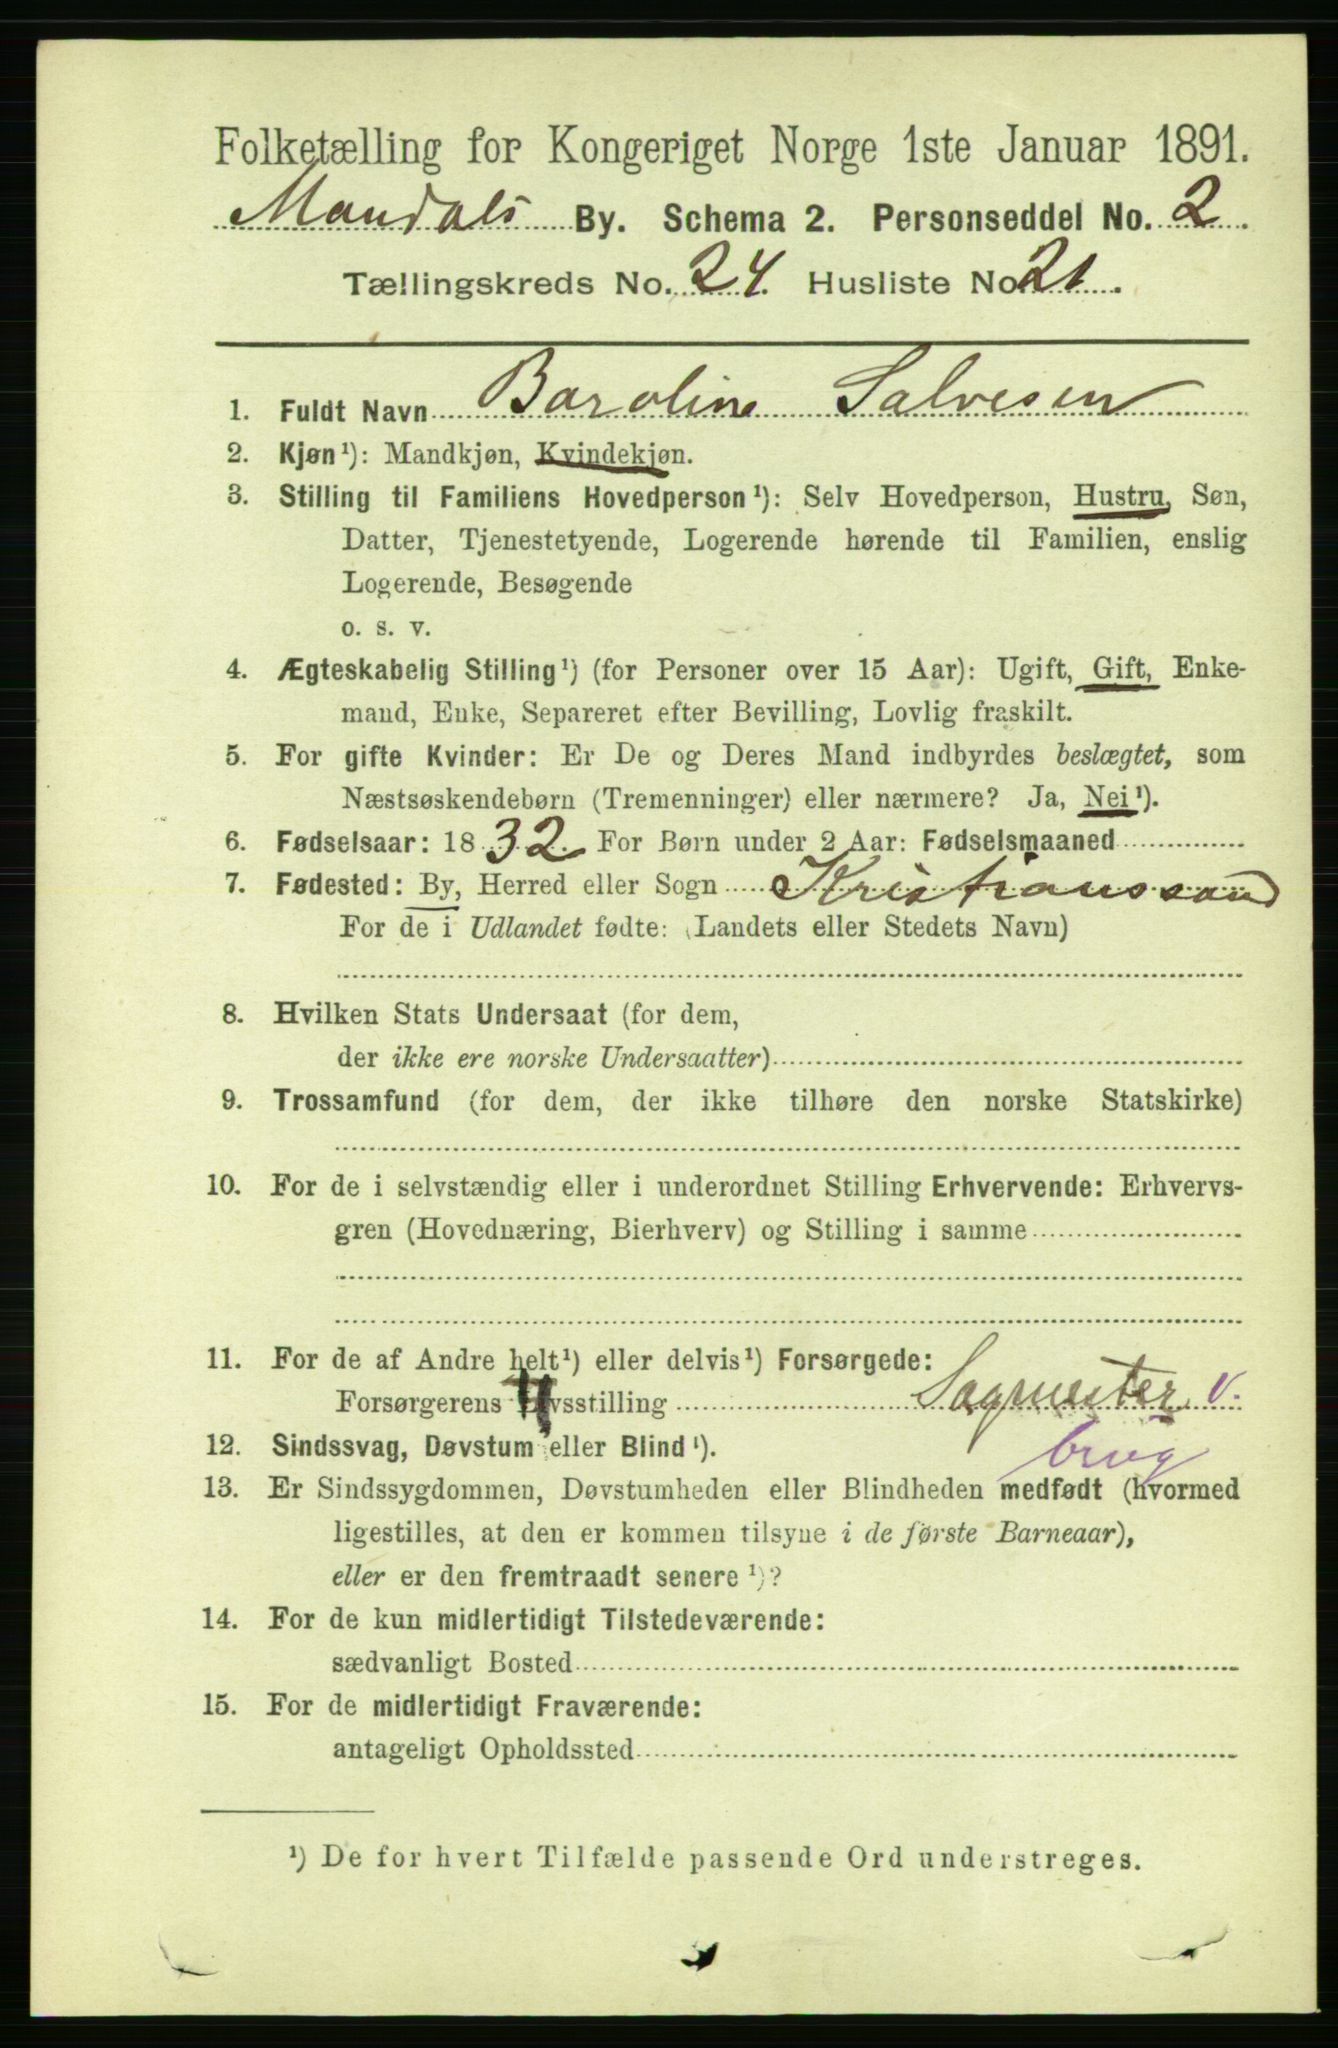 Folketælling for Kongeriget Norge 1ste Januar 1891.
Mandals By. Schema 2. Personseddel No. 2.
Tællingskreds No. 24. Husliste No. 21.
1. Fuldt Navn Baroline Salvesen
2. Kjøn¹): Mandkjøn, Kvindekjøn.
3. Stilling til Familiens Hovedperson¹): Selv Hovedperson, Hustru, Søn,
Datter, Tjenestetyende, Logerende hørende til Familien, enslig
Logerende, Besøgende
o. s. v.
4. Ægteskabelig Stilling¹) (for Personer over 15 Aar): Ugift, Gift, Enke-
mand, Enke, Separeret efter Bevilling, Lovlig fraskilt.
5. For gifte Kvinder: Er De og Deres Mand indbyrdes beslægtet, som
Næstsøskendebørn (Tremenninger) eller nærmere? Ja, Nei¹).
6. Fødselsaar: 1832. For Børn under 2 Aar: Fødselsmaaned
7. Fødested: By, Herred eller Sogn Kristianssand
For de i Udlandet fødte: (Landets eller Stedets Navn)
8. Hvilken Stats Undersaat (for dem,
der ikke ere norske Undersaatter)
9. Trossamfund (for dem, der ikke tilhøre den norske Statskirke)
10. For de i selvstændig eller i underordnet Stilling Erhvervende: Erhvervs-
gren (Hovednæring, Bierhverv) og Stilling i samme
11. For de af Andre helt¹) eller delvis¹) Forsørgede:
Forsørgerens Livsstilling Sagmester v.
brug
12. Sindssvag, Døvstum eller Blind¹).
13. Er Sindssygdommen, Døvstumheden eller Blindheden medfødt (hvormed
ligestilles, at den er kommen tilsyne i de første Barneaar),
eller er den fremtraadt senere¹)?
14. For de kun midlertidigt Tilstedeværende:
sædvanligt Bosted
15. For de midlertidigt Fraværende:
antageligt Opholdssted
¹) De for hvert Tilfælde passende Ord understreges.